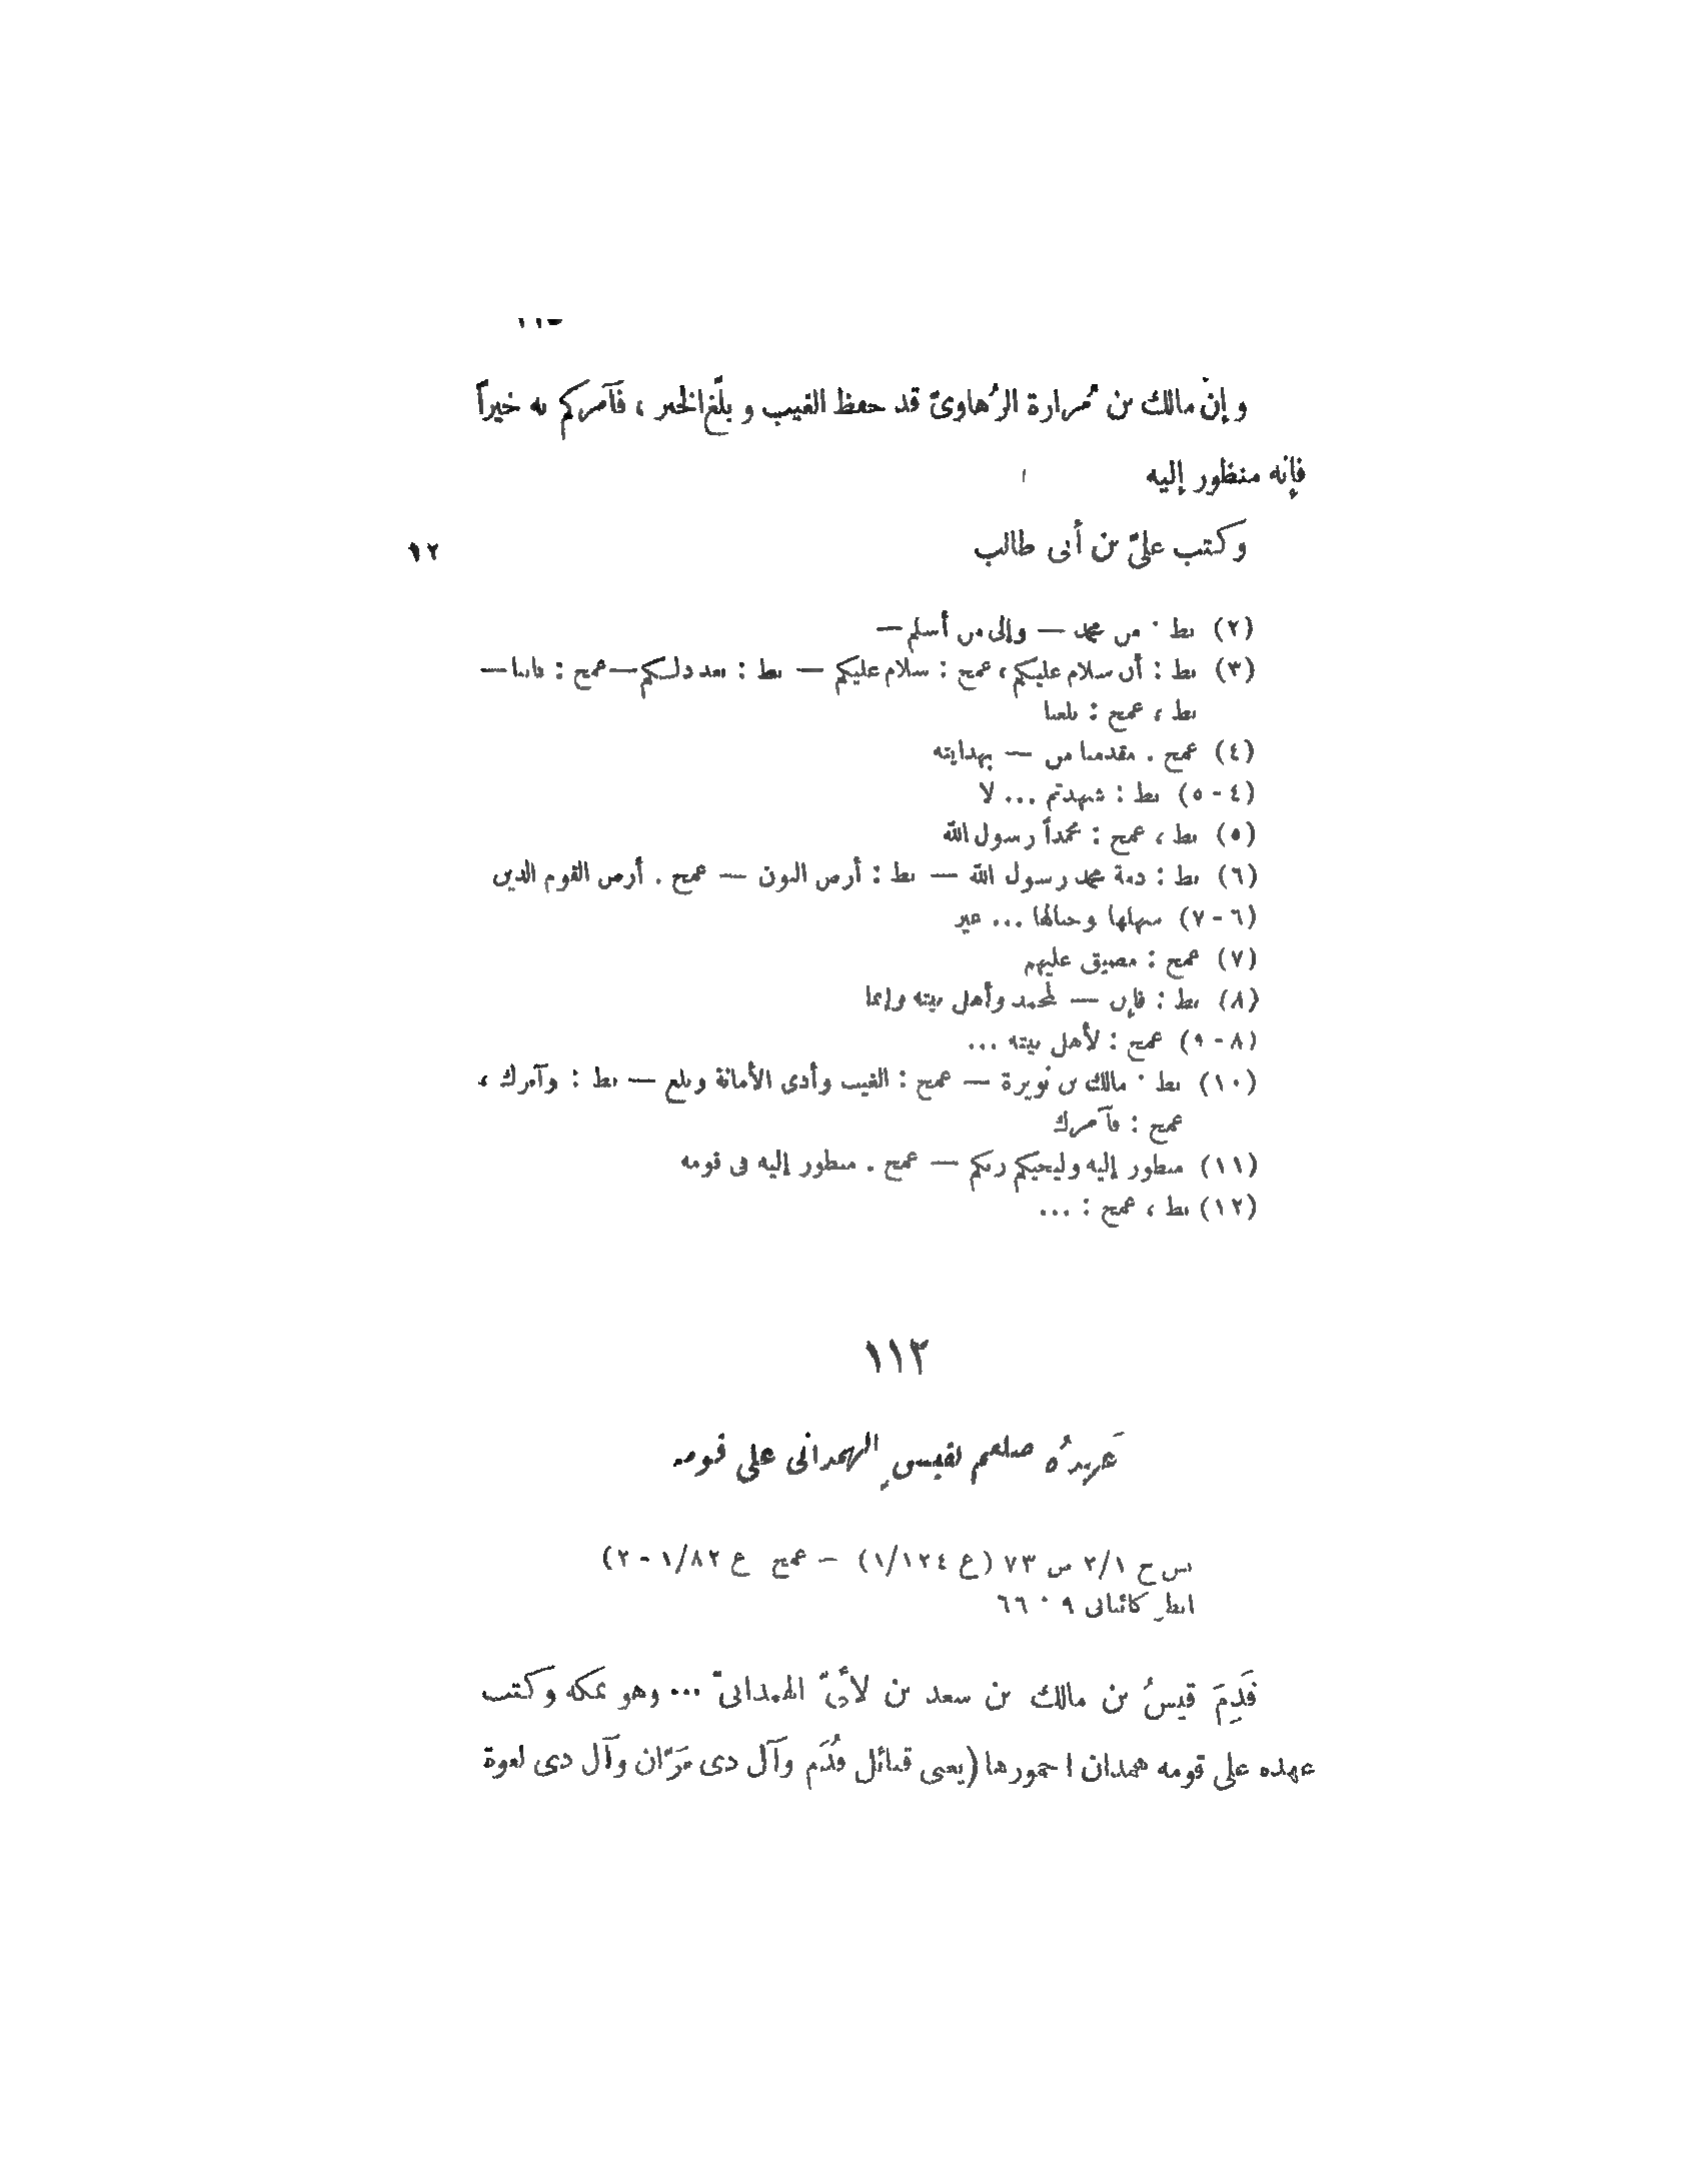 وإنّ مالك بن مُرارة الرُهاوىّ قد حفظ الغيب و بلّغ الخبر ، فآمركم به خيراً
فإنه منظور إليه
وكتب علىّ بن أبى طالب
١٢
(٢) بط : من محمد — وإلى من أسلم —
(٣) بط : أن سلام عليكم ، عمح : سلام عليكم — بط : بعد ذلكم — عمح : فانا —
بط ، عمح : بلغنا
(٤) عمح : مقدمنا من — بهدايته
(٤-٥) بط : شهدتم ... لا
(٥) بط ، عمح : محمداً رسول الله
(٦) بط : ذمة محمد رسول الله — بط : أرض البون — عمح : أرض القوم الذين
(٦-٧) سهلها وجبالها ... غير
(٧) عمح : مضيق عليهم
(٨) بط : فإن — لمحمد وأهل بيته وإنما
(٨-٩) عمح : لأهل بيته ...
(١٠) بط : مالك بن نويرة — عمح : الغيب وأدى الأمانة وبلغ — بط : وآمرك ،
عمح : فآمرك
(١١) منظور إليه وليحيكم ربكم — عمح : منظور إليه فى قومه
(١٢) بط ، عمح : ...
١١٢
عَهدُه صلعم لقيسٍ الهمدانى على قومه
بس ج ٢/١ ص ٧٣ (ع ١/١٢٤) — عمح ع ١/٨٢-٢)
انظر كائتانى ٩ : ٦٦
قَدِمَ قيسُ بن مالك بن سعد بن لأىّ الهمدانىّ ... وهو بمكة وكتب
عهده على قومه همدان احمورها (يعنى قبائل قُدَم وآل ذى مَرّان وآل ذى لعوة